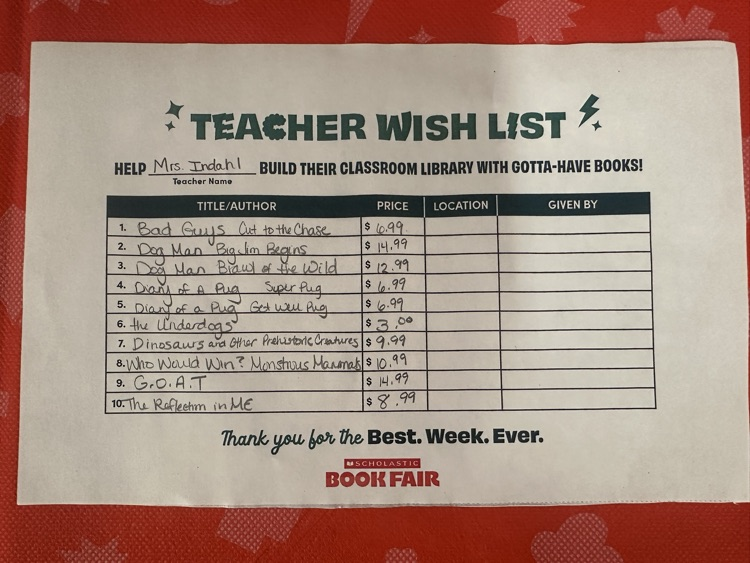 TEACHER WISH LIST
HELP Mrs. Indahl BUILD THEIR CLASSROOM LIBRARY WITH GOTTA-HAVE BOOKS!
Teacher Name
TITLE/AUTHOR PRICE LOCATION GIVEN BY
1. Bad Guys Cut to the Chase $ 6.99
2. Dog Man Big Jim Begins $ 14.99
3. Dog Man Brawl of the Wild $ 12.99
4. Diary of A Pug Super Pug $ 6.99
5. Diary of a Pug Get Well Pug $ 6.99
6. the Underdogs $ 3.00
7. Dinosaurs and Other Prehistoric Creatures $ 9.99
8. Who Would Win? Monstrous Mammals $ 10.99
9. G.O.A.T $ 14.99
10. The Reflection in ME $ 8.99
Thank you for the Best. Week. Ever.
SCHOLASTIC
BOOK FAIR